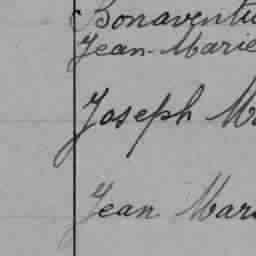 Bonaventu
Jean-Marie
Joseph Ma
Jean Mari